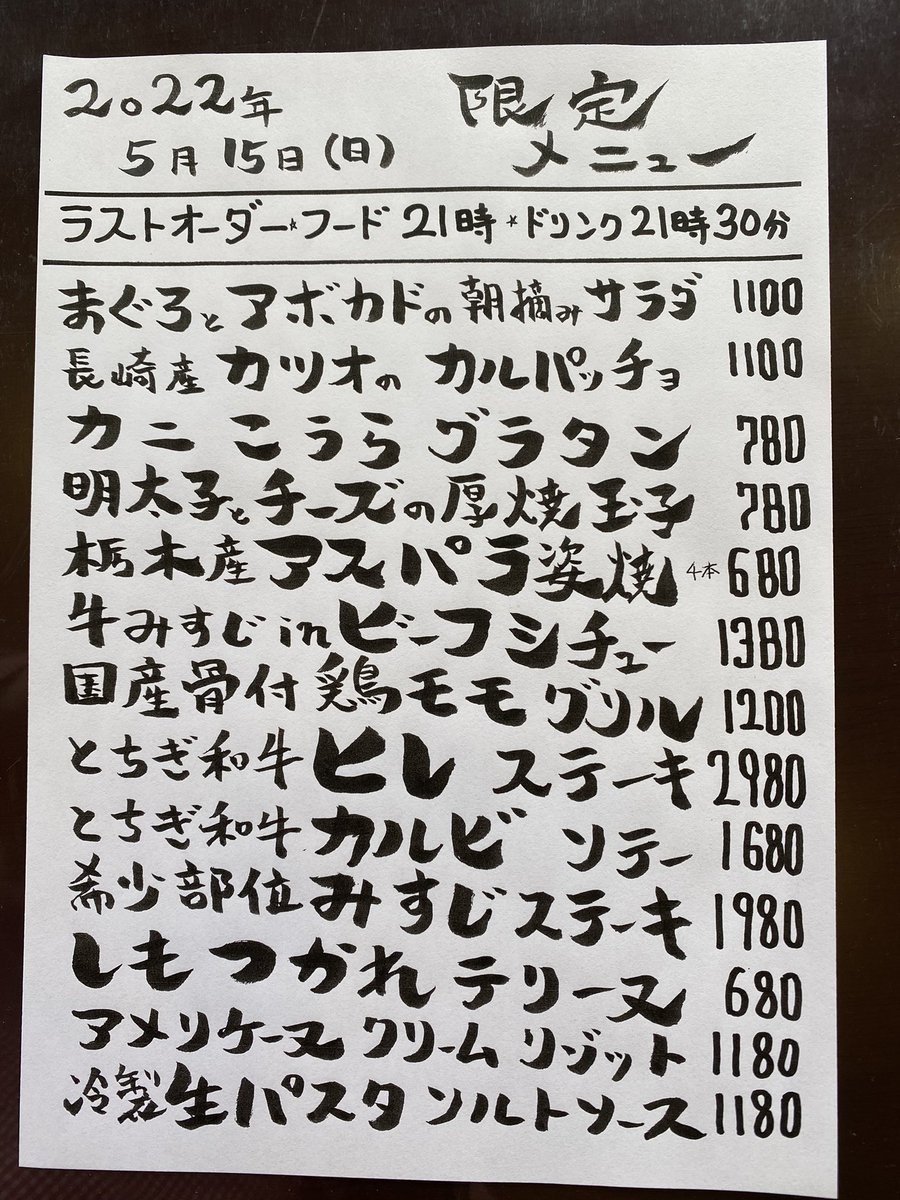 2022年
5月15日(日)
限定
メニュー
ラストオーダー*フード21時*ドリンク21時30分
まぐろとアボカドの朝摘みサラダ 1100
長崎産カツオのカルパッチョ 1100
カニこうらグラタン 780
明太子とチーズの厚焼玉子 780
栃木産アスパラ姿焼 4本 680
牛みすじinビーフシチュー 1380
国産骨付鶏モモグリル 1200
とちぎ和牛ヒレステーキ 2980
とちぎ和牛カルビソテー 1680
希少部位みすじステーキ 1980
しもつかれテリーヌ 680
アメリケーヌクリームリゾット 1180
冷製生パスタソルトソース 1180